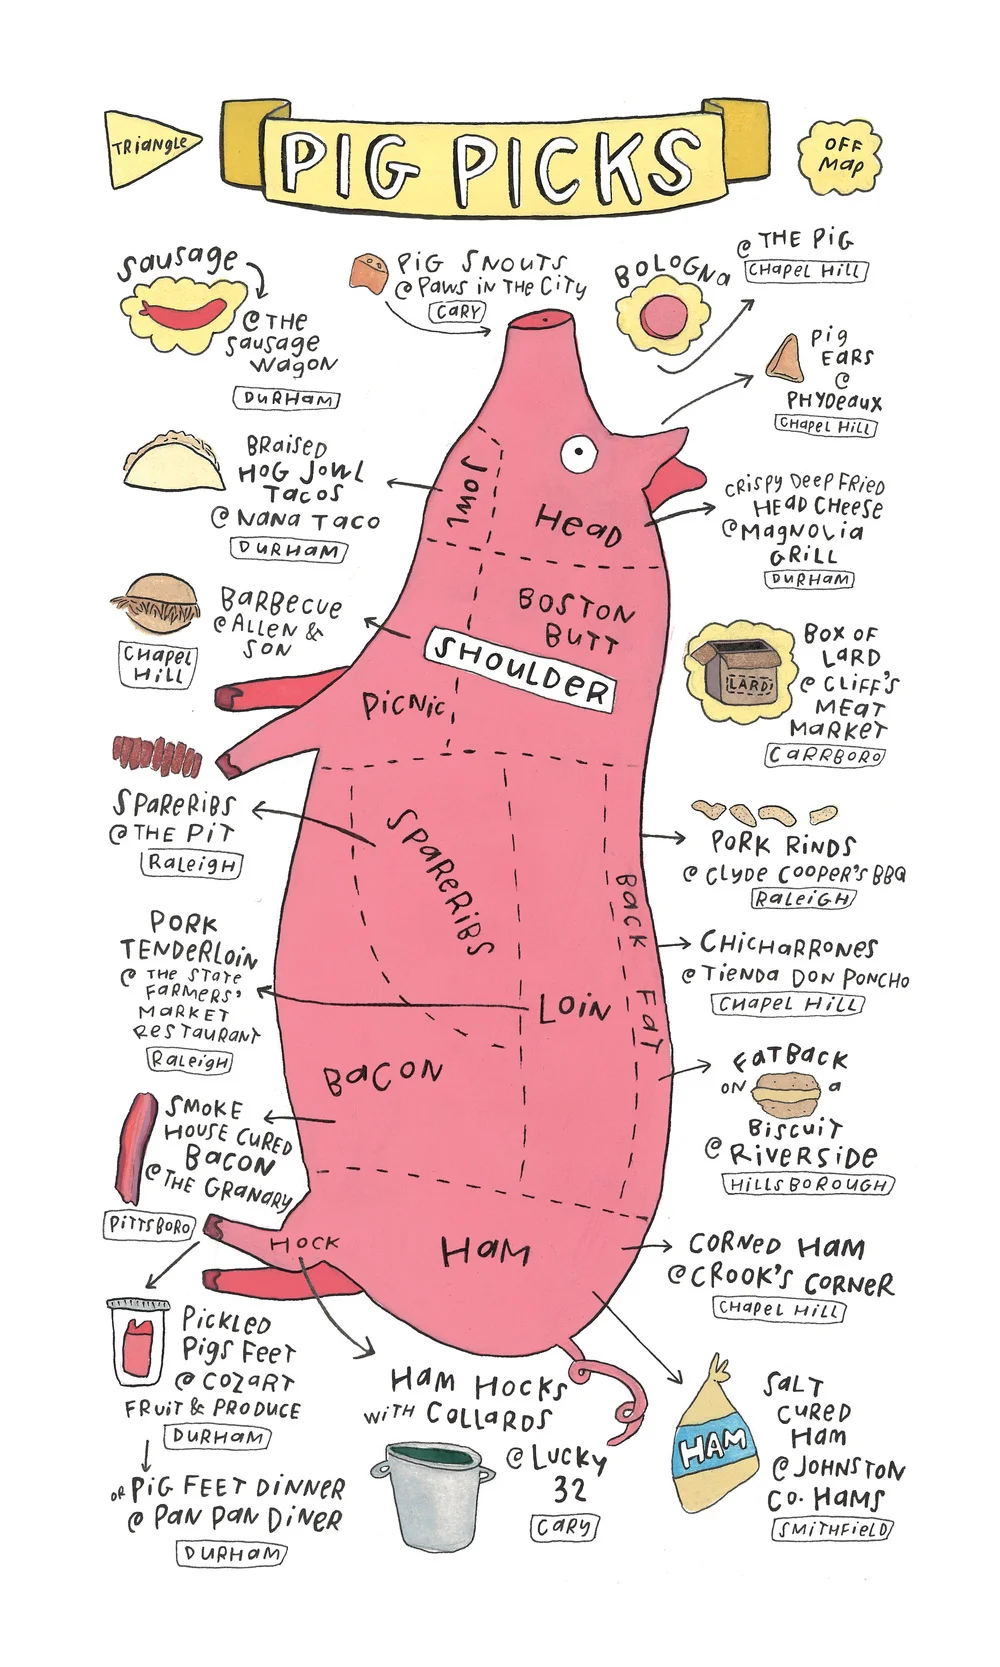 TRIANGLE
PIG PICKS
OFF
MAP
SAUSAGE
@ THE
SAUSAGE
WAGON
DURHAM
PIG SNOUTS
@ PAWS IN THE CITY
CARY
BOLOGNA
@ THE PIG
CHAPEL HILL
PIG
EARS
@
PHYDEAUX
CHAPEL HILL
BRAISED
HOG JOWL
TACOS
@ NANA TACO
DURHAM
JOWL
HEAD
CRISPY DEEP FRIED
HEAD CHEESE
@ MAGNOLIA
GRILL
DURHAM
BARBECUE
@ ALLEN &
SON
CHAPEL
HILL
BOSTON
BUTT
SHOULDER
PICNIC
BOX OF
LARD
@ CLIFF'S
MEAT
MARKET
CARRBORO
LARD
SPARERIBS
@ THE PIT
RALEIGH
SPARERIBS
BACK FAT
PORK RINDS
@ CLYDE COOPER'S BBQ
RALEIGH
PORK
TENDERLOIN
@ THE STATE
FARMERS'
MARKET
RESTAURANT
RALEIGH
LOIN
CHICHARRONES
@ TIENDA DON PONCHO
CHAPEL HILL
BACON
FATBACK
ON A
BISCUIT
@ RIVERSIDE
HILLSBOROUGH
SMOKE
HOUSE CURED
BACON
@ THE GRANARY
PITTSBORO
HOCK
HAM
CORNED HAM
@ CROOK'S CORNER
CHAPEL HILL
PICKLED
PIGS FEET
@ COZART
FRUIT & PRODUCE
DURHAM
OR PIG FEET DINNER
@ PAN PAN DINER
DURHAM
HAM HOCKS
WITH COLLARDS
@ LUCKY
32
CARY
HAM
SALT
CURED
HAM
@ JOHNSTON
CO. HAMS
SMITHFIELD